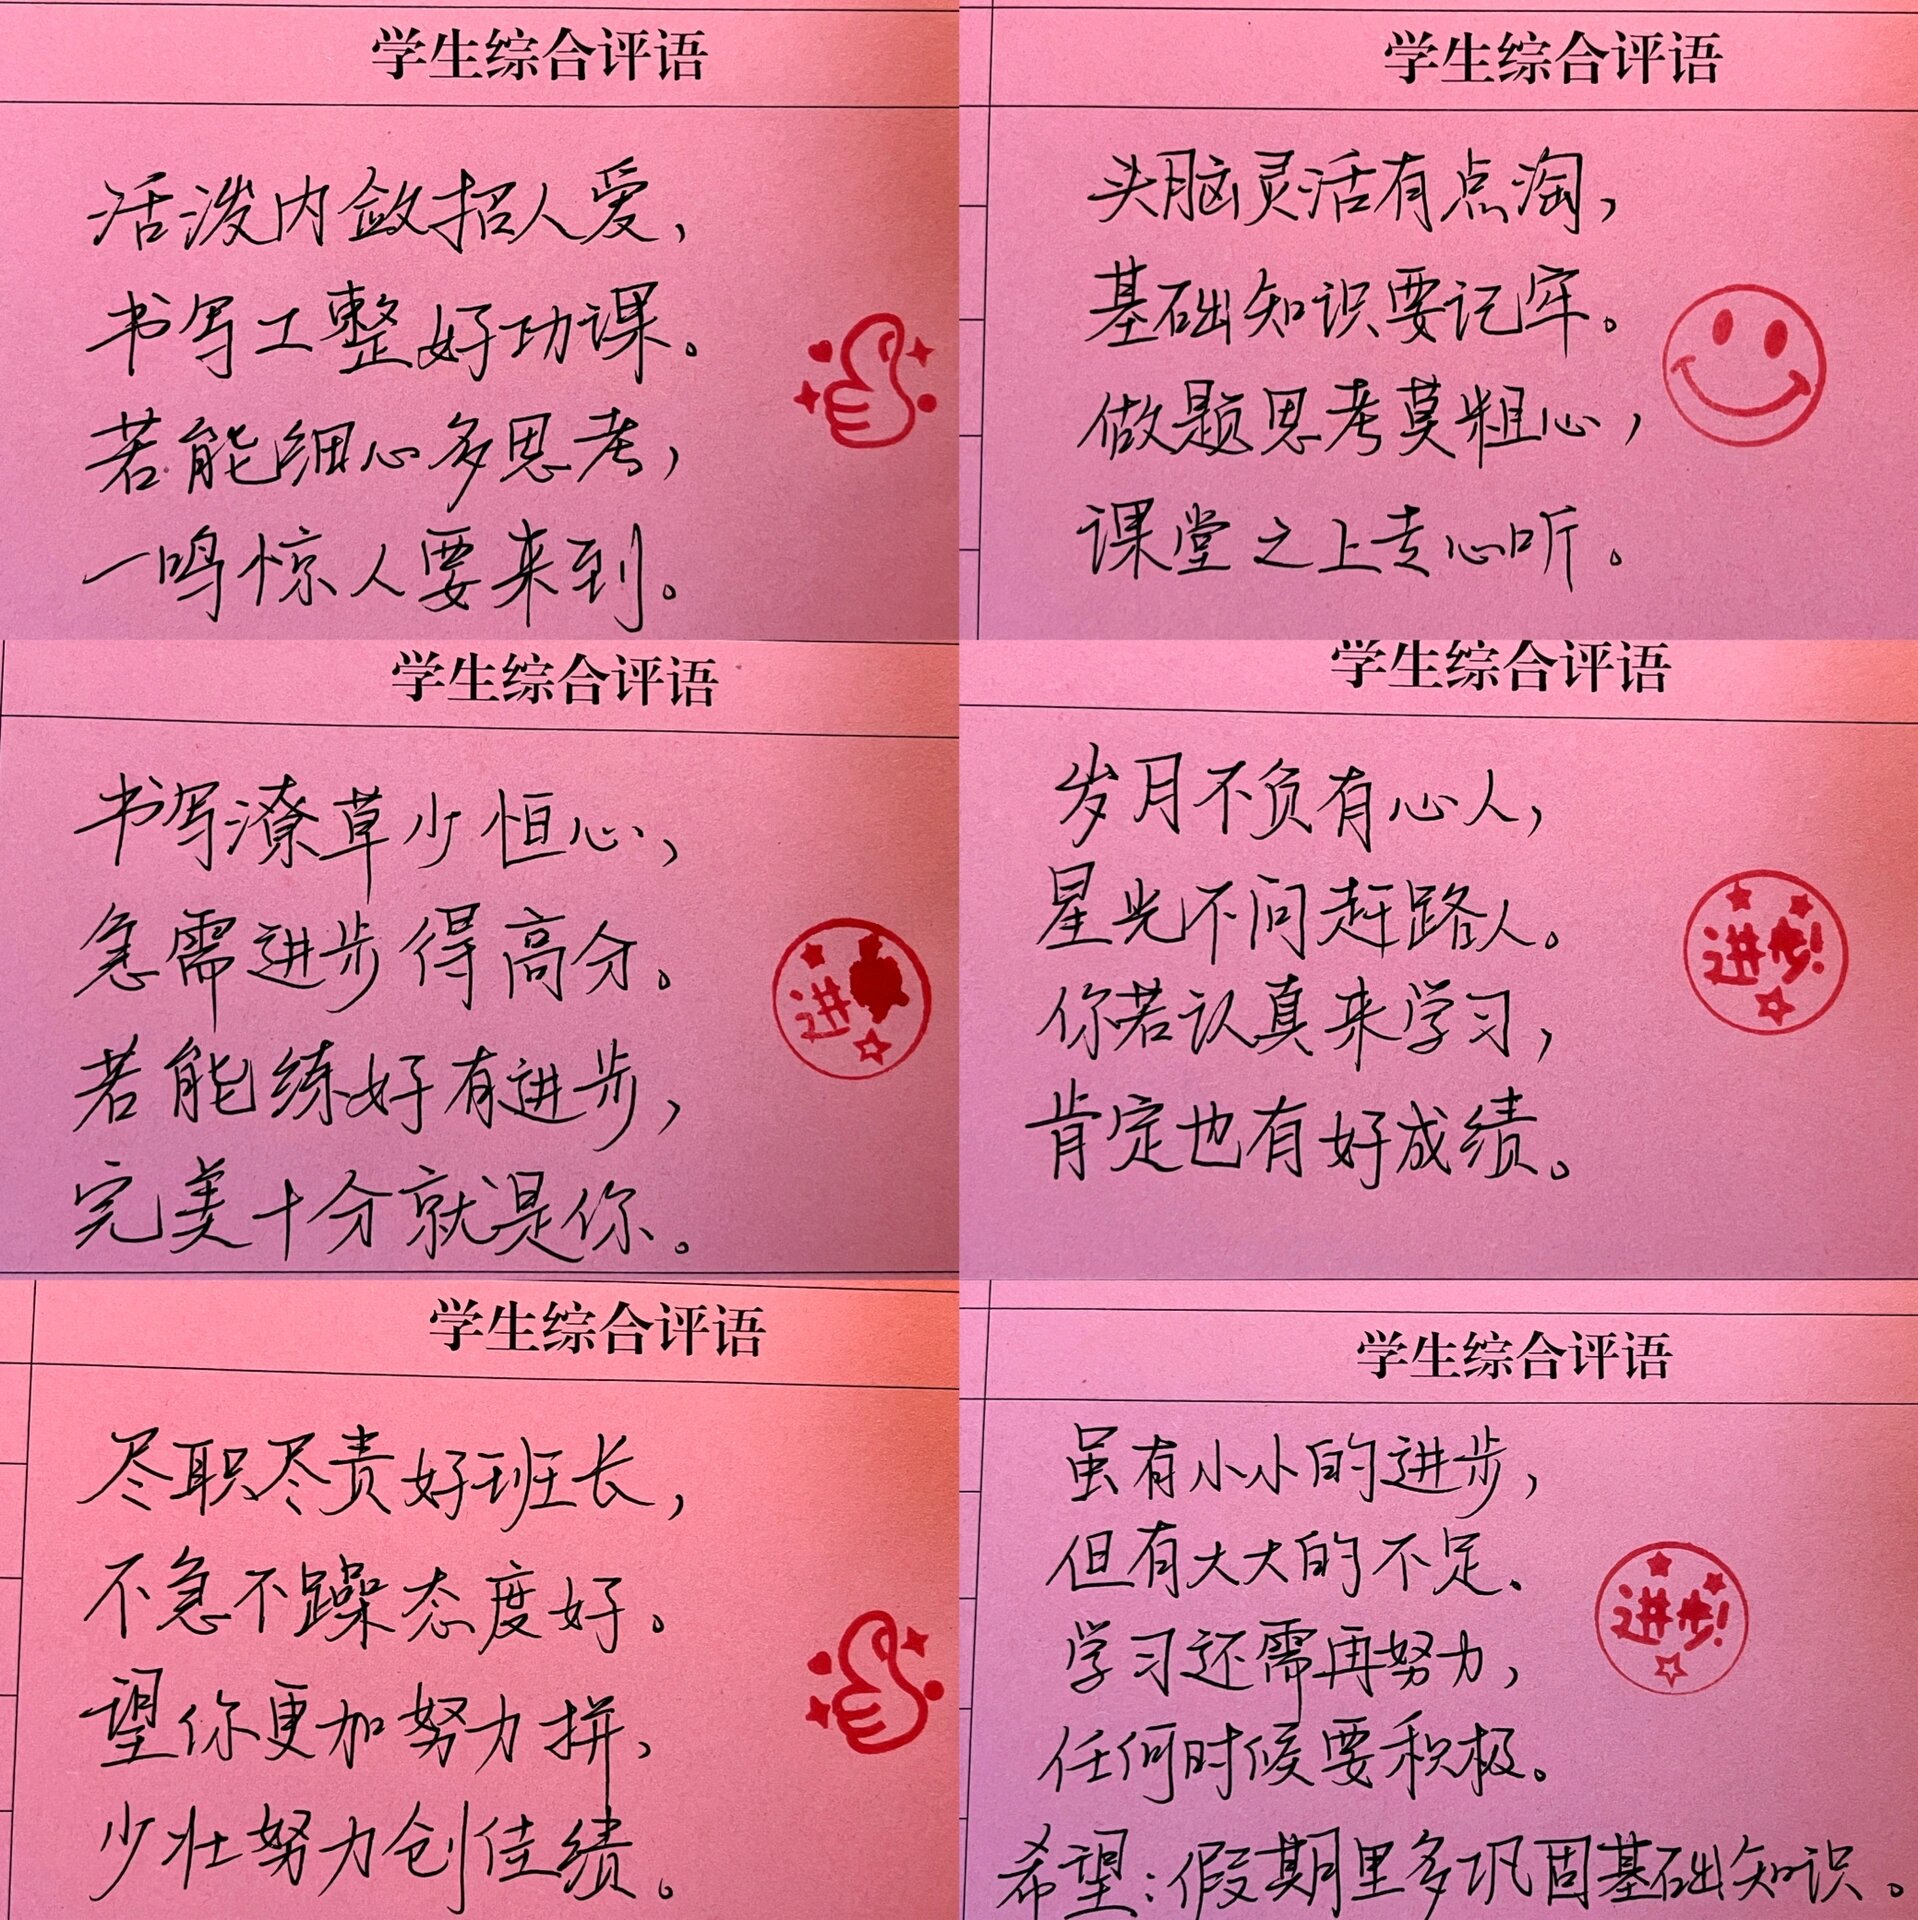 学生综合评语
活泼内敛招人爱，
书写工整好功课。
若能细心多思考，
一鸣惊人要来到。
学生综合评语
头脑灵活有点淘，
基础知识要记牢。
做题思考莫粗心，
课堂之上专心听。
学生综合评语
书写潦草少恒心，
急需进步得高分。
若能练好有进步，
完美十分就是你。
进
学生综合评语
岁月不负有心人，
星光不问赶路人。
你若认真来学习，
肯定也有好成绩。
进步!
学生综合评语
尽职尽责好班长，
不急不躁态度好。
望你更加努力拼，
少壮努力创佳绩。
学生综合评语
虽有小小的进步，
但有大大的不足、
学习还需再努力，
任何时候要积极。
希望：假期里多巩固基础知识。
进步!